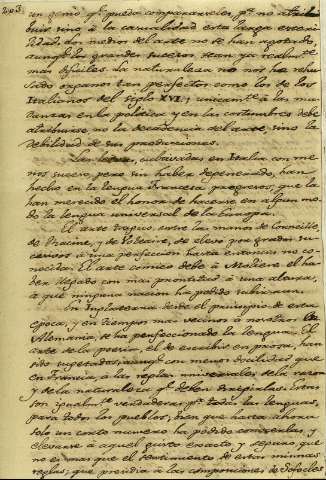 203.
un genio qe. pueda comparárseles, pr. no atri-
buir sino á la casualidad esta larga esteri-
lidad. Los medios del arte no se han agotado,
aunqe. los grandes sucesos sean ya realmte.
mas dificiles. La naturaleza no nos ha rehu-
sado organos tan perfectos como los de los
Italianos del siglo XVI; unicamte. á las mu-
danzas en la politica y en las costumbres debe
atribuirse no la decadencia del arte, sino la
debilidad de sus producciones.
Las letras, cultivadas en Italia con me-
nos suceso, pero sin haber degenerado, han
hecho en la lengua Francesa progresos, que la
han merecido el honor de hacerse en algun mo-
do la lengua universal de la Europa.
El arte tragico, entre las manos de Corneille,
de Racine, y de Voltaire, se elevó por grados su-
cesivos á una perfeccion hasta entonces no co-
nocida. El arte comico debe á Moliere el ha-
ber llegado con mas prontitud á una altura,
á que ninguna nacion ha podido subir aun.
En Inglaterra desde el principio de esta
epoca, y en tiempo mas vecino á nosotros en
Alemania, se ha perfeccionado la lengua. El
arte de la poesia, el de escribir en prosa, han
sido sugetados, aunqe. con menos docilidad que
en Francia, á las reglas universales de la razon
y de la naturaleza qe. deben dirigirlas. Estas
son igualmte. verdaderas pa. todas las lenguas,
para todos los pueblos, bien que hasta ahora
solo un corto numero ha podido conocerlas, y
elevarse á aquel gusto exacto, y seguro, que
no es mas que el sentimiento de estas mismas
reglas, que presidia á las composiciones de Sofocles